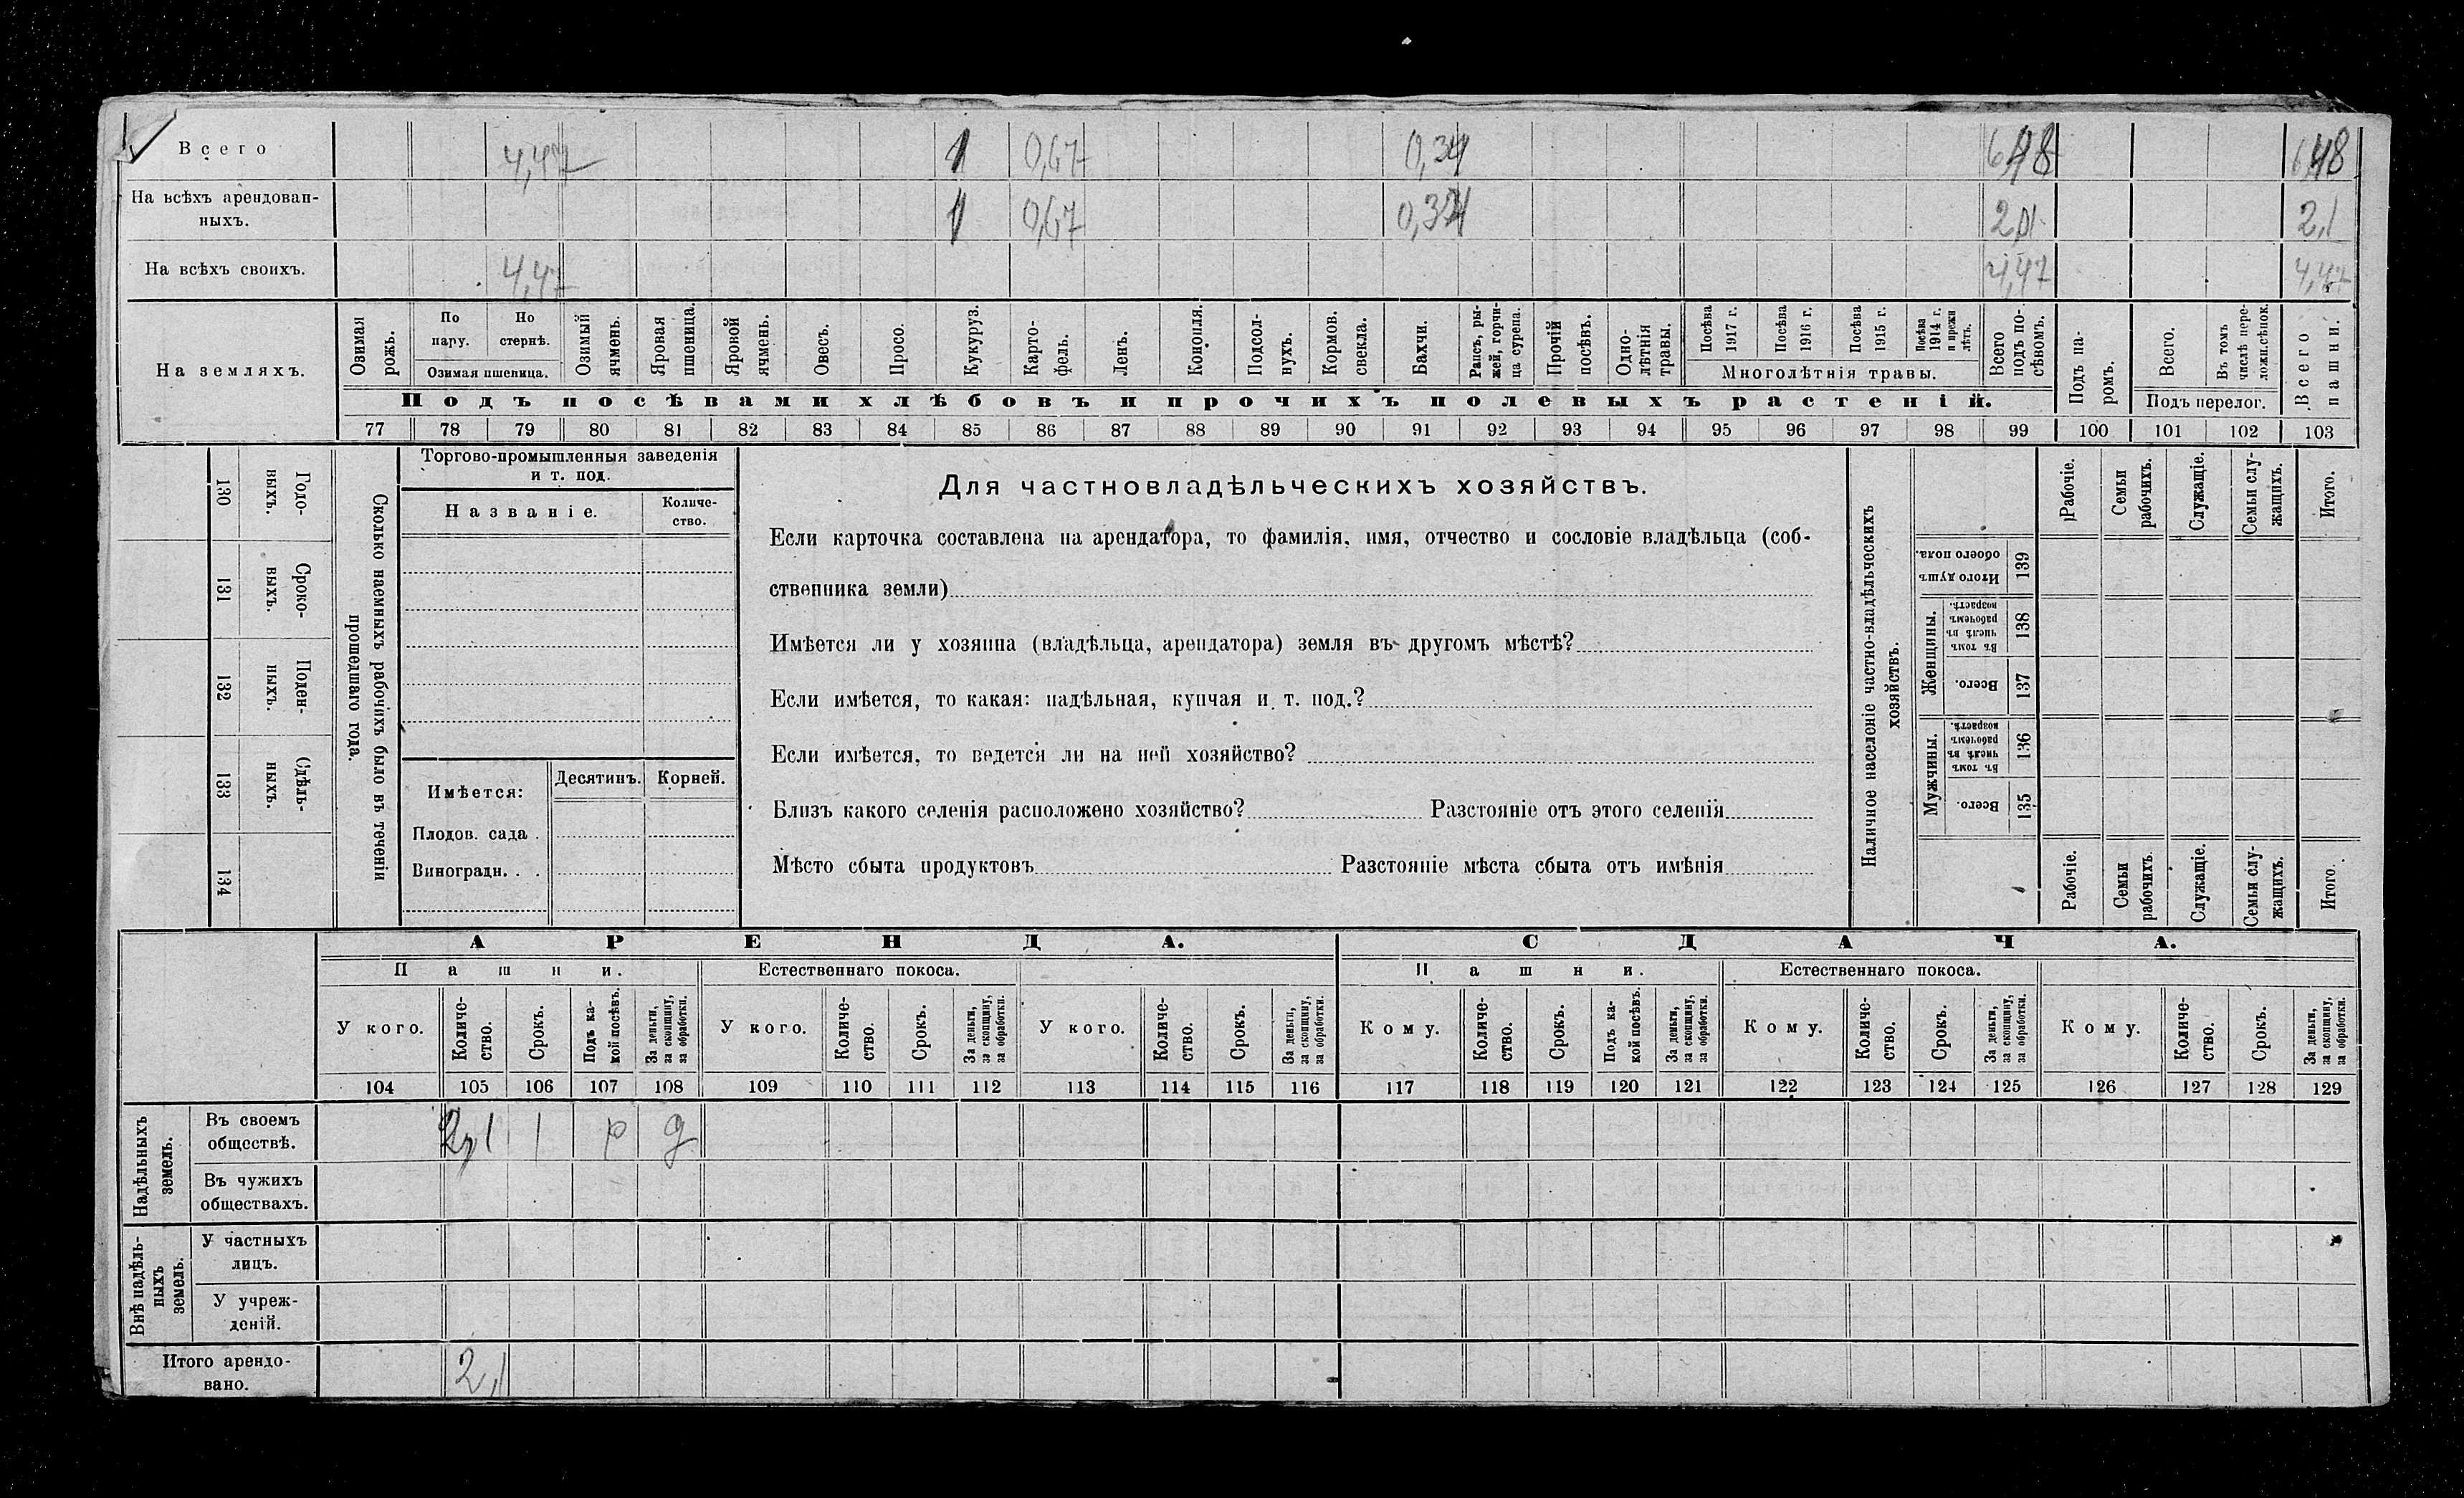 Всего 4,47 1 0,67 0,34 6,48 6,48
На всѣхъ арендован-
ныхъ. 1 0,67 0,34 2,1 2,1
На всѣхъ своихъ. 4,47 4,47 4,47
На земляхъ.
Озимая рожь.
По пару.
По стернѣ.
Озимая пшеница.
Озимый ячмень.
Яровая пшеница.
Яровой ячмень.
Овесъ.
Просо.
Кукуруз.
Карто-
фель.
Ленъ.
Конопля.
Подсол-
нухъ.
Кормов. свекла.
Бахчи.
Рапсъ, ры-
жей, горчи-
ца сурепа.
Прочій посѣвъ.
Одно-
лѣтнія травы.
Посѣва 1917 г.
Посѣва 1916 г.
Посѣва 1915 г.
Посѣва 1914 г. и прежн лѣтъ.
Многолѣтнія травы.
Всего подъ по-
сѣвомъ.
Подъ па-
ромъ.
Всего.
Въ томъ числѣ пере-
ложн.сѣнок.
Подъ перелог.
Всего пашни.
Подъ посѣвами хлѣбовъ и прочихъ полевыхъ растеній.
77 78 79 80 81 82 83 84 85 86 87 88 89 90 91 92 93 94 95 96 97 98 99 100 101 102 103
Сколько наемныхъ рабочихъ было въ теченіи
прошедшаго года.
Годо-
выхъ.
130
Сроко-
выхъ.
131
Поден-
ныхъ.
132
Сдѣль-
ныхъ.
133
134
Торгово-промышленныя заведенія
и т. под.
Названіе.
Количе-
ство.
Имѣется:
Десятинъ.
Корней.
Плодов. сада .
Виноградн. . .
Для частновладѣльческихъ хозяйствъ.
Если карточка составлена на арендатора, то фамилія, имя, отчество и сословіе владѣльца (соб-
ственника земли)
Имѣется ли у хозяина (владѣльца, арендатора) земля въ другомъ мѣстѣ?
Если имѣется, то какая: надѣльная, купчая и т. под.?
Если имѣется, то ведется ли на ней хозяйство?
Близъ какого селенія расположено хозяйство? Разстояніе отъ этого селенія
Мѣсто сбыта продуктовъ Разстояніе мѣста сбыта отъ имѣнія
Наличное населеніе частно-владѣльческихъ
хозяйствъ.
Рабочіе.
Семьи рабочихъ.
Служащіе.
Семьи слу-
жащихъ.
Итого.
Итого душъ обоего пола.
139
Женщины.
Въ томъ числѣ въ рабочемъ возрастѣ.
138
Всего.
137
Мужчины.
Въ томъ числѣ въ рабочемъ возрастѣ.
136
Всего.
135
Рабочіе.
Семьи рабочихъ.
Служащіе.
Семьи слу-
жащихъ.
Итого.
АРЕНДА. СДАЧА.
Пашни. Естественнаго покоса. Пашни. Естественнаго покоса.
У кого.
Количе-
ство.
Срокъ.
Подъ ка-
кой посѣвъ.
За деньги, за скопщину, за обработки.
У кого.
Количе-
ство.
Срокъ.
За деньги, за скопщину, за обработки.
У кого.
Количе-
ство.
Срокъ.
За деньги, за скопщину, за обработки.
Кому.
Количе-
ство.
Срокъ.
Подъ ка-
кой посѣвъ.
За деньги, за скопщину, за обработки.
Кому.
Количе-
ство.
Срокъ.
За деньги, за скопщину, за обработки.
Кому.
Количе-
ство.
Срокъ.
За деньги, за скопщину, за обработки.
104 105 106 107 108 109 110 111 112 113 114 115 116 117 118 119 120 121 122 123 124 125 126 127 128 129
Надѣльныхъ земель.
Въ своемъ
обществѣ. 2,1 1 р д
Въ чужихъ
обществахъ.
Внѣ надѣль-
ныхъ земель.
У частныхъ
лицъ.
У учреж-
деній.
Итого арендо-
вано. 2,1